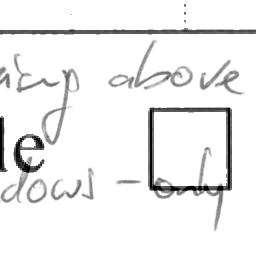 above
le
dows - only